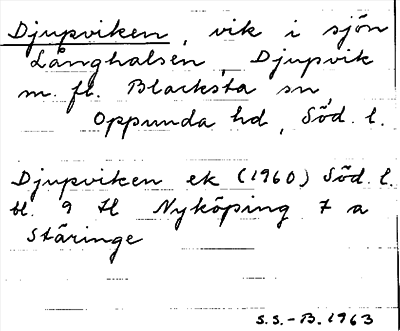 Djupviken, vik i sjön
Långhalsen, Djupvik
m. fl. Blacksta sn,
Oppunda hd, Söd. l.
Djupviken ek (1960) Söd. l.
bl. 9 H Nyköping 7 a
Stäringe
S.S.-B. 1963